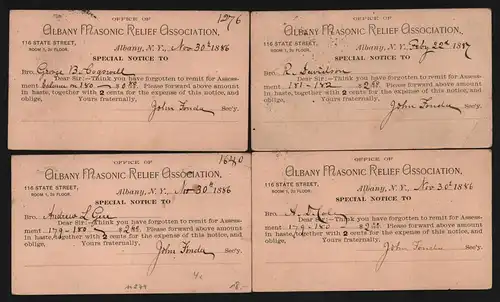 OFFICE OF 1276
ALBANY MASONIC RELIEF ASSOCIATION.
116 STATE STREET,
ROOM 1, 2D FLOOR. Albany, N. Y., Nov 30th 1886
SPECIAL NOTICE TO
Bro. George B. Cogswell
Dear Sir:—Think you have forgotten to remit for Assess-
ment balance on 180 — $ Please forward above amount
in haste, together with 2 cents for the expense of this notice, and
oblige, Yours fraternally,
John Fonda Sec'y.
OFFICE OF
ALBANY MASONIC RELIEF ASSOCIATION.
116 STATE STREET,
ROOM 1, 2D FLOOR. Albany, N. Y. Feby 22d 1887
SPECIAL NOTICE TO
Bro. R. Davidson
Dear Sir:—Think you have forgotten to remit for Assess-
ment 181-182 — $2 Please forward above amount
in haste, together with 2 cents for the expense of this notice, and
oblige, Yours fraternally,
John Fonda Sec'y.
OFFICE OF 1640
ALBANY MASONIC RELIEF ASSOCIATION.
116 STATE STREET,
ROOM 1, 2D FLOOR. Albany, N. Y., Nov 30th 1886
SPECIAL NOTICE TO
Bro. Andrew L
Dear Sir:—Think you have forgotten to remit for Assess-
ment 179-180 — $2 Please forward above amount
in haste, together with 2 cents for the expense of this notice, and
oblige, Yours fraternally,
John Fonda Sec'y.
OFFICE OF
ALBANY MASONIC RELIEF ASSOCIATION.
116 STATE STREET,
ROOM 1, 2D FLOOR. Albany, N. Y., Nov. 30th 1886
SPECIAL NOTICE TO
Bro.
Dear Sir:—Think you have forgotten to remit for Assess-
ment 179-180 — $2 Please forward above amount
in haste, together with 2 cents for the expense of this notice, and
oblige, Yours fraternally,
John Fonda Sec'y.